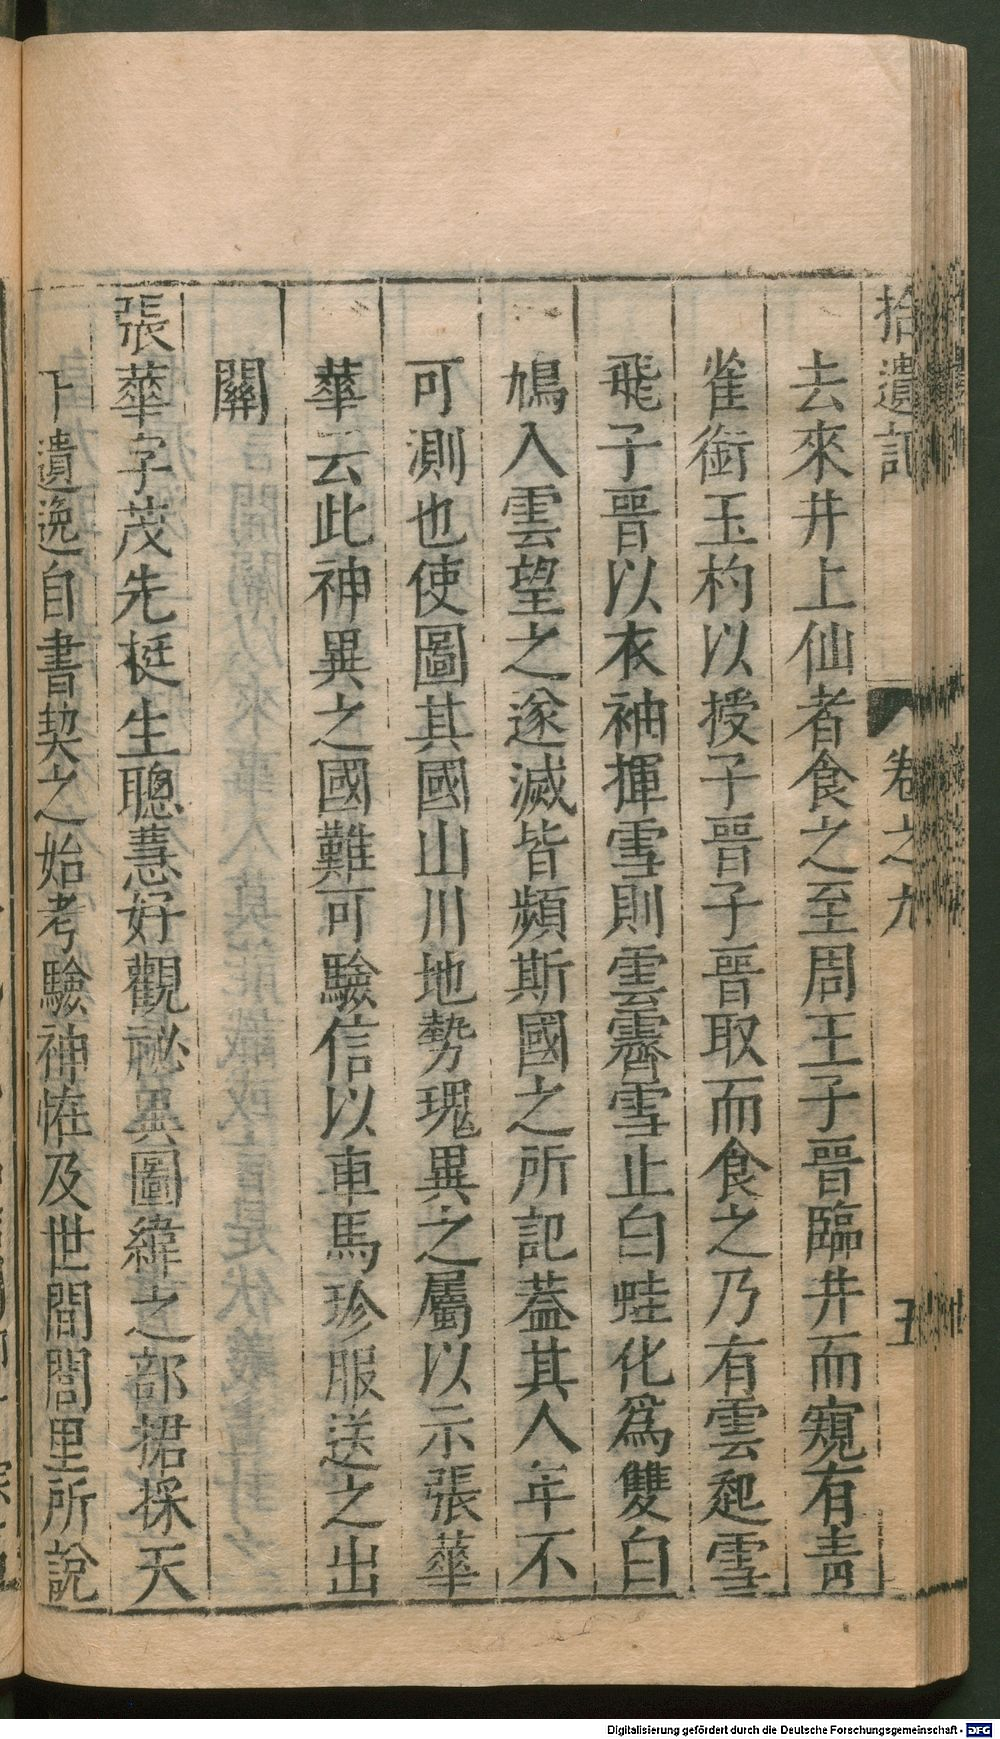 拾遺記
卷之九
五
去來井上仙者食之至周王子晉臨井而窺有青
雀銜玉杓以授子晉子晉取而食之乃有雲起雪
飛子晉以衣袖揮雪則雲霽雪止白蛙化爲雙白
鳩入雲望之遂滅皆頻斯國之所記葢其人年不
可測也使圖其國山川地勢瑰異之屬以示張華
華云此神異之國難可驗信以車馬珍服送之出
關
張華字茂先挺生聰慧好觀祕異圖緯之部捃採天
下遺逸自書契之始考驗神怪及世間閭里所說
Digitalisierung gefördert durch die Deutsche Forschungsgemeinschaft - DFG